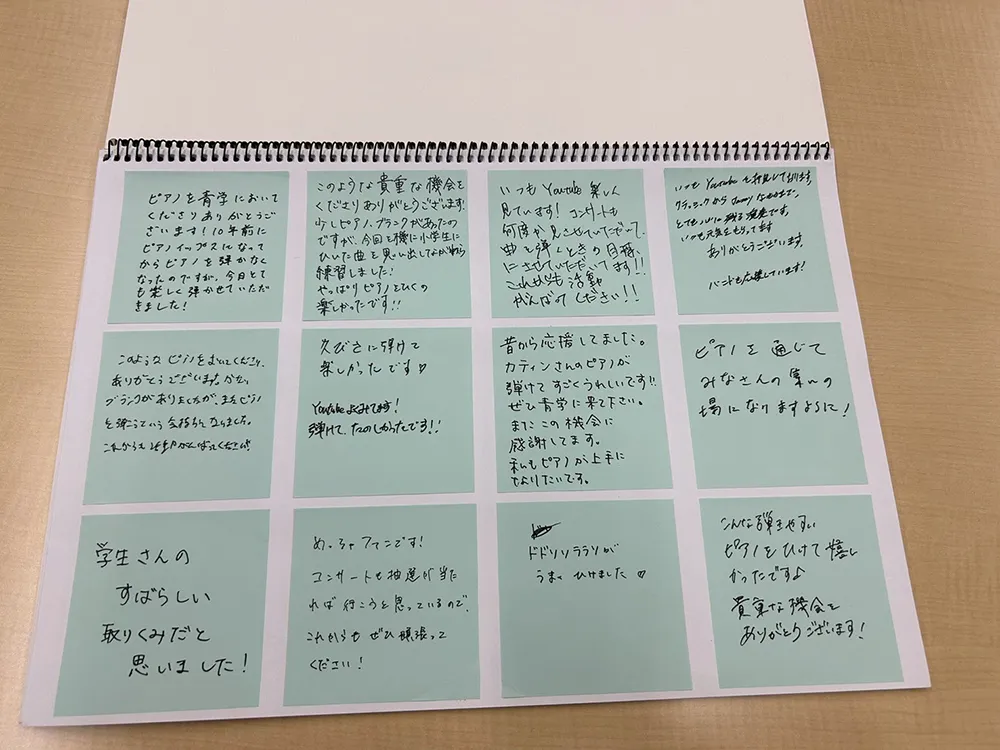 ピアノを青学において
くださりありがとうご
ざいます!10年前に
ピアノイップスになって
からピアノを弾かなく
なったのですが、今日とて
も楽しく弾かせていただ
きました!
このような貴重な機会を
くださりありがとうございます!
少しピアノ、ブランクがあったの
ですが、今回を機に小学生に
ひいた曲を思い出してよかれら
練習しました!
やっぱりピアノをひくの
楽しかったです!!
いつも Youtube 楽しく
見ています! コンサートも
何度か見させていただいて、
曲を弾くときの目標
にさせていただいてます!!
これからも活動
がんばってください!!
いつも Youtube を拝見しております。
クラシックから
とても心に残る演奏です。
いつも元気をもらってます
ありがとうございます。
バンドも応援しています!
このような ピアノをおいてくださり、
ありがとうございます。かなり
ブランクがありましたが、またピアノ
を弾こうという気持ちになりました。
これからも活動がんばってください!
久びさに弾けて
楽しかったです♡
Youtubeよくみてます!
弾けて、たのしかったです!!
昔から応援してました。
カティンさんのピアノが
弾けて すごくうれしいです!!
ぜひ青学に来て下さい。
またこの機会に
感謝してます。
私もピアノが上手に
なりたいです。
ピアノを通じて
みなさんの集いの
場になりますように!
学生さんの
すばらしい
取りくみだと
思いました!
めっちゃファンです!
コンサートも抽選が当た
れば行こうと思っているので、
これからも ぜひ頑張って
ください!
ドドソソララソが
うまくひけました♡
こんな弾きやすい
ピアノをひけて嬉し
かったです♪
貴重な機会を
ありがとうございます!